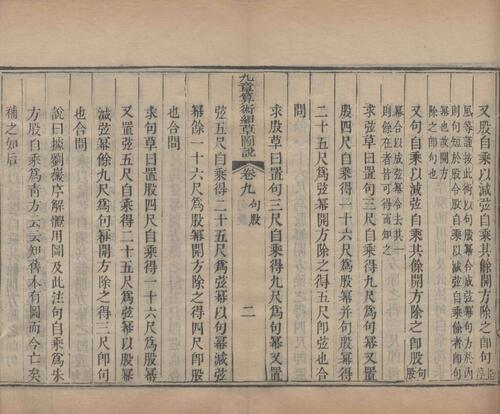 又股自乘以減弦自乘其餘開方除之卽句臣淳
風等謹按此術以句股冪合成弦冪句方於內
則句短於股令股自乘以減弦自乘餘者卽句
冪也故開方
除之卽句也
又句自乘以減弦自乘其餘開方除之卽股句股
冪合以成弦冪令去其一
則餘在者皆可得而知之
求弦草曰置句三尺自乘得九尺爲句冪又置
股四尺自乘得一十六尺爲股冪并句股冪得
二十五尺爲弦冪開方除之得五尺卽弦也合
問
求股草曰置句三尺自乘得九尺爲句冪又置
九章算術細草圖說 卷九 句股 二
弦五尺自乘得二十五尺爲弦冪以句冪減弦
冪餘一十六尺爲股冪開方除之得四尺卽股
也合問
求句草曰置股四尺自乘得一十六尺爲股冪
又置弦五尺自乘得二十五尺爲弦冪以股冪
減弦冪餘九尺爲句冪開方除之得三尺卽句
也合問
說曰據劉徽序解體用圖及此法句自乘爲朱
方股自乘爲青方云云知舊本有圖而今亡矣
補之如后